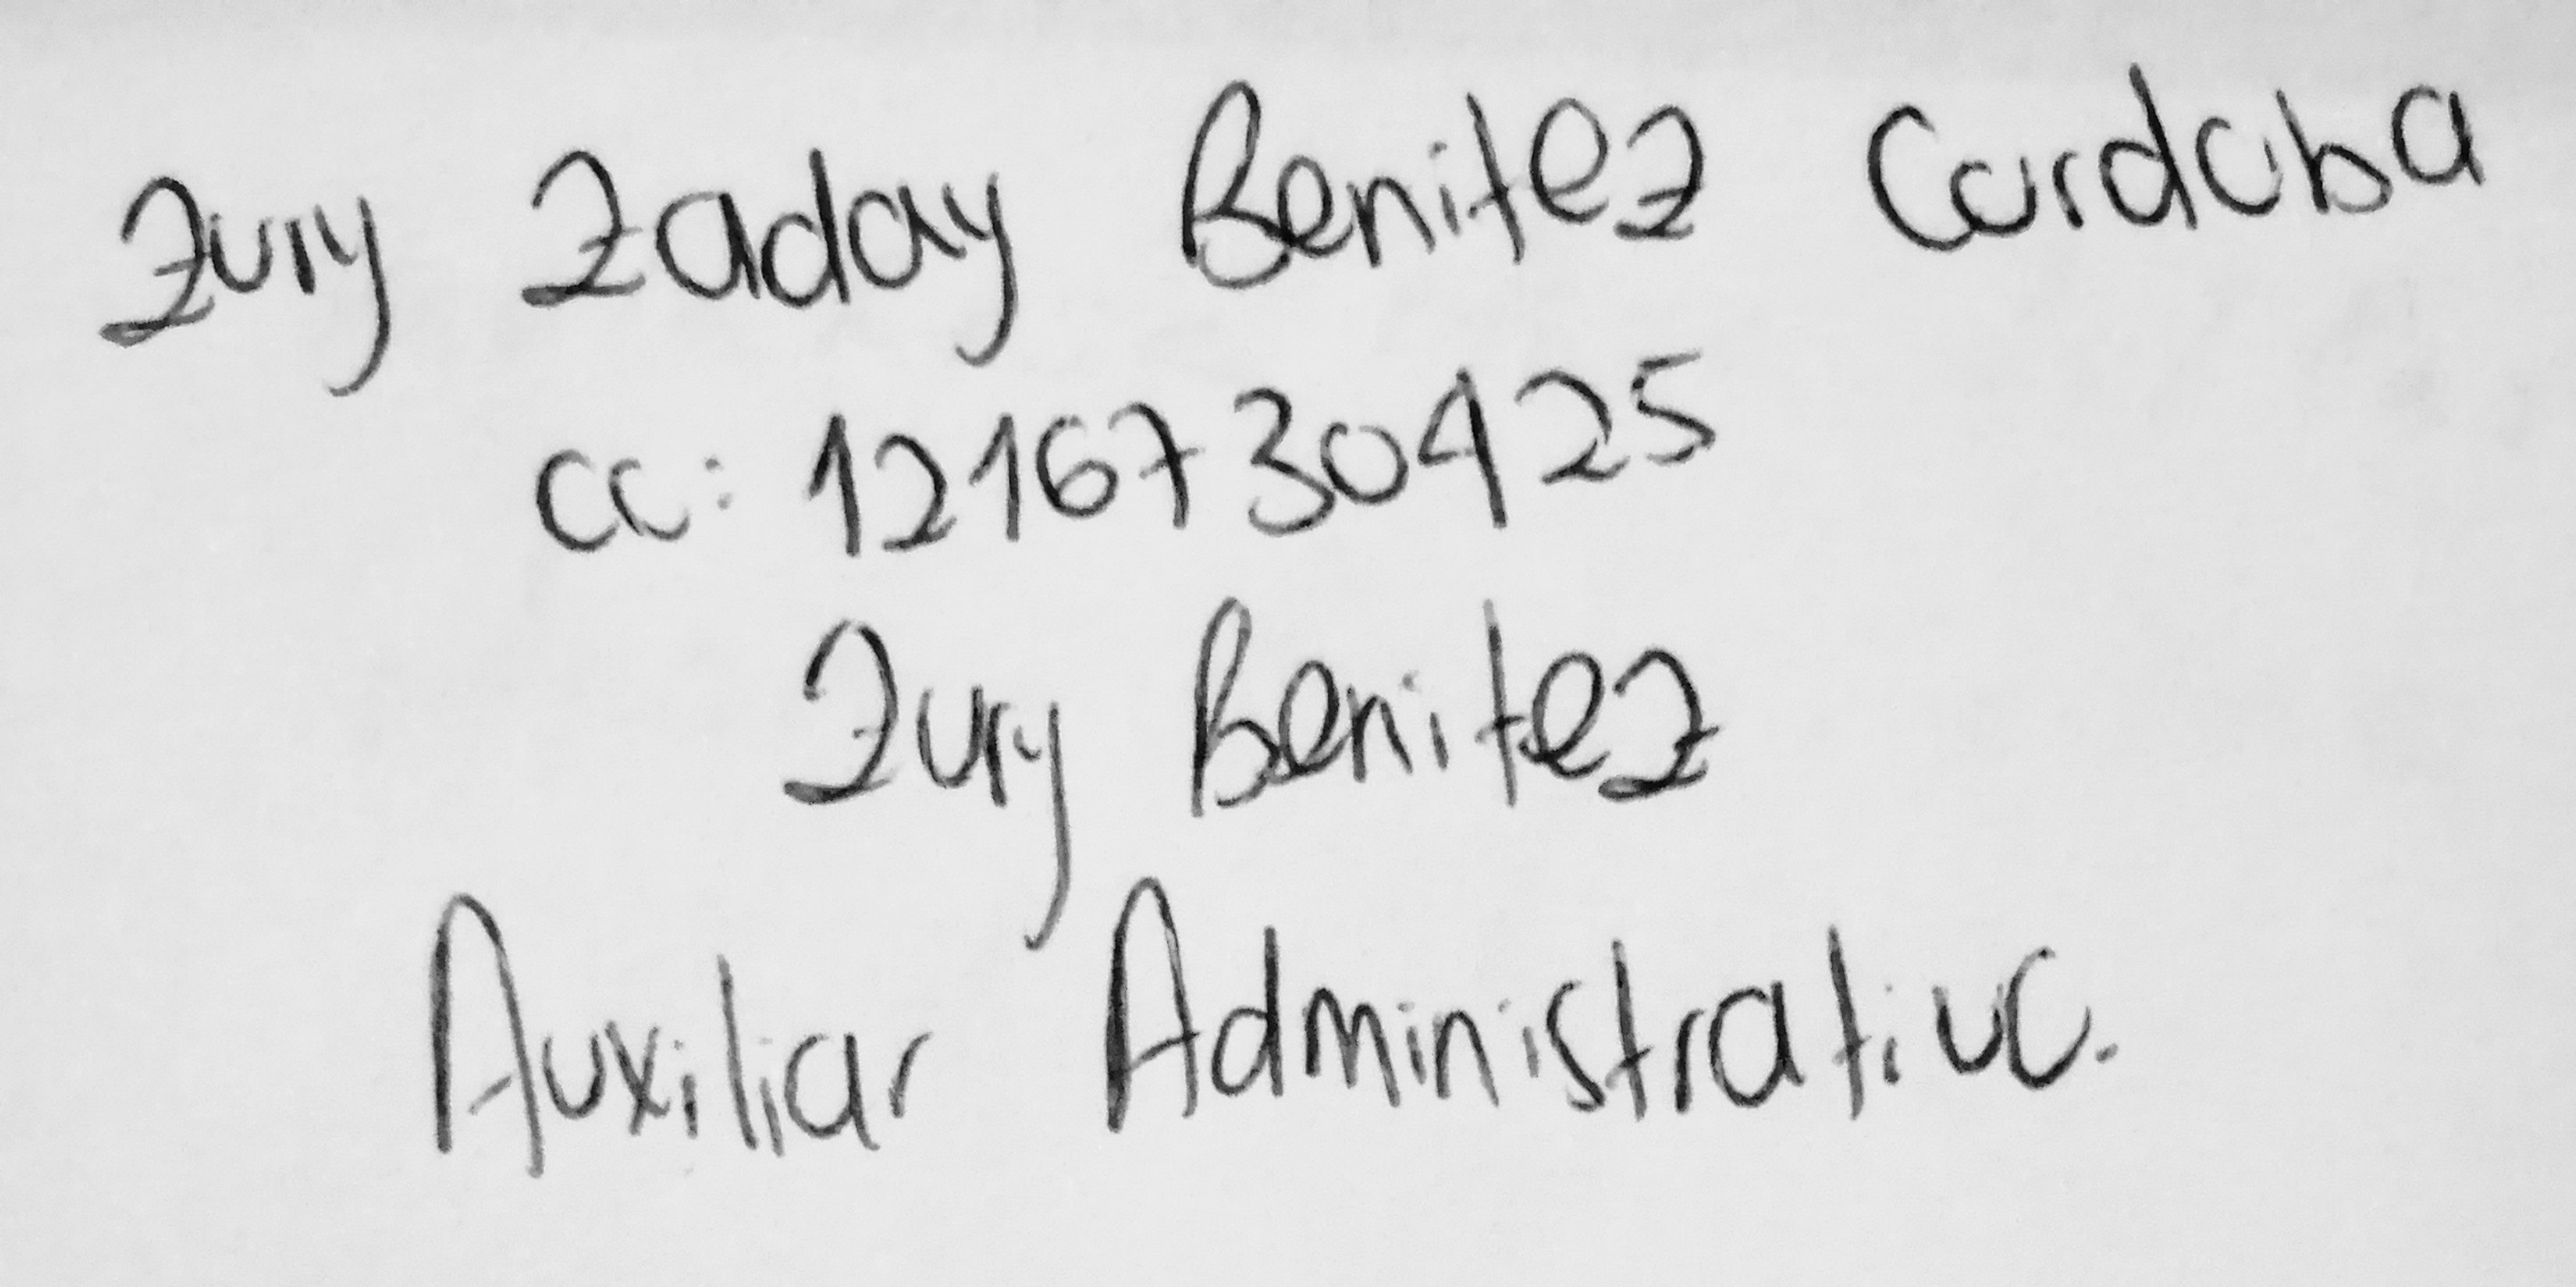 Zury Zaday Benitez Cordoba
CC: 1216730425
Zury Benitez
Auxiliar Administrativo.